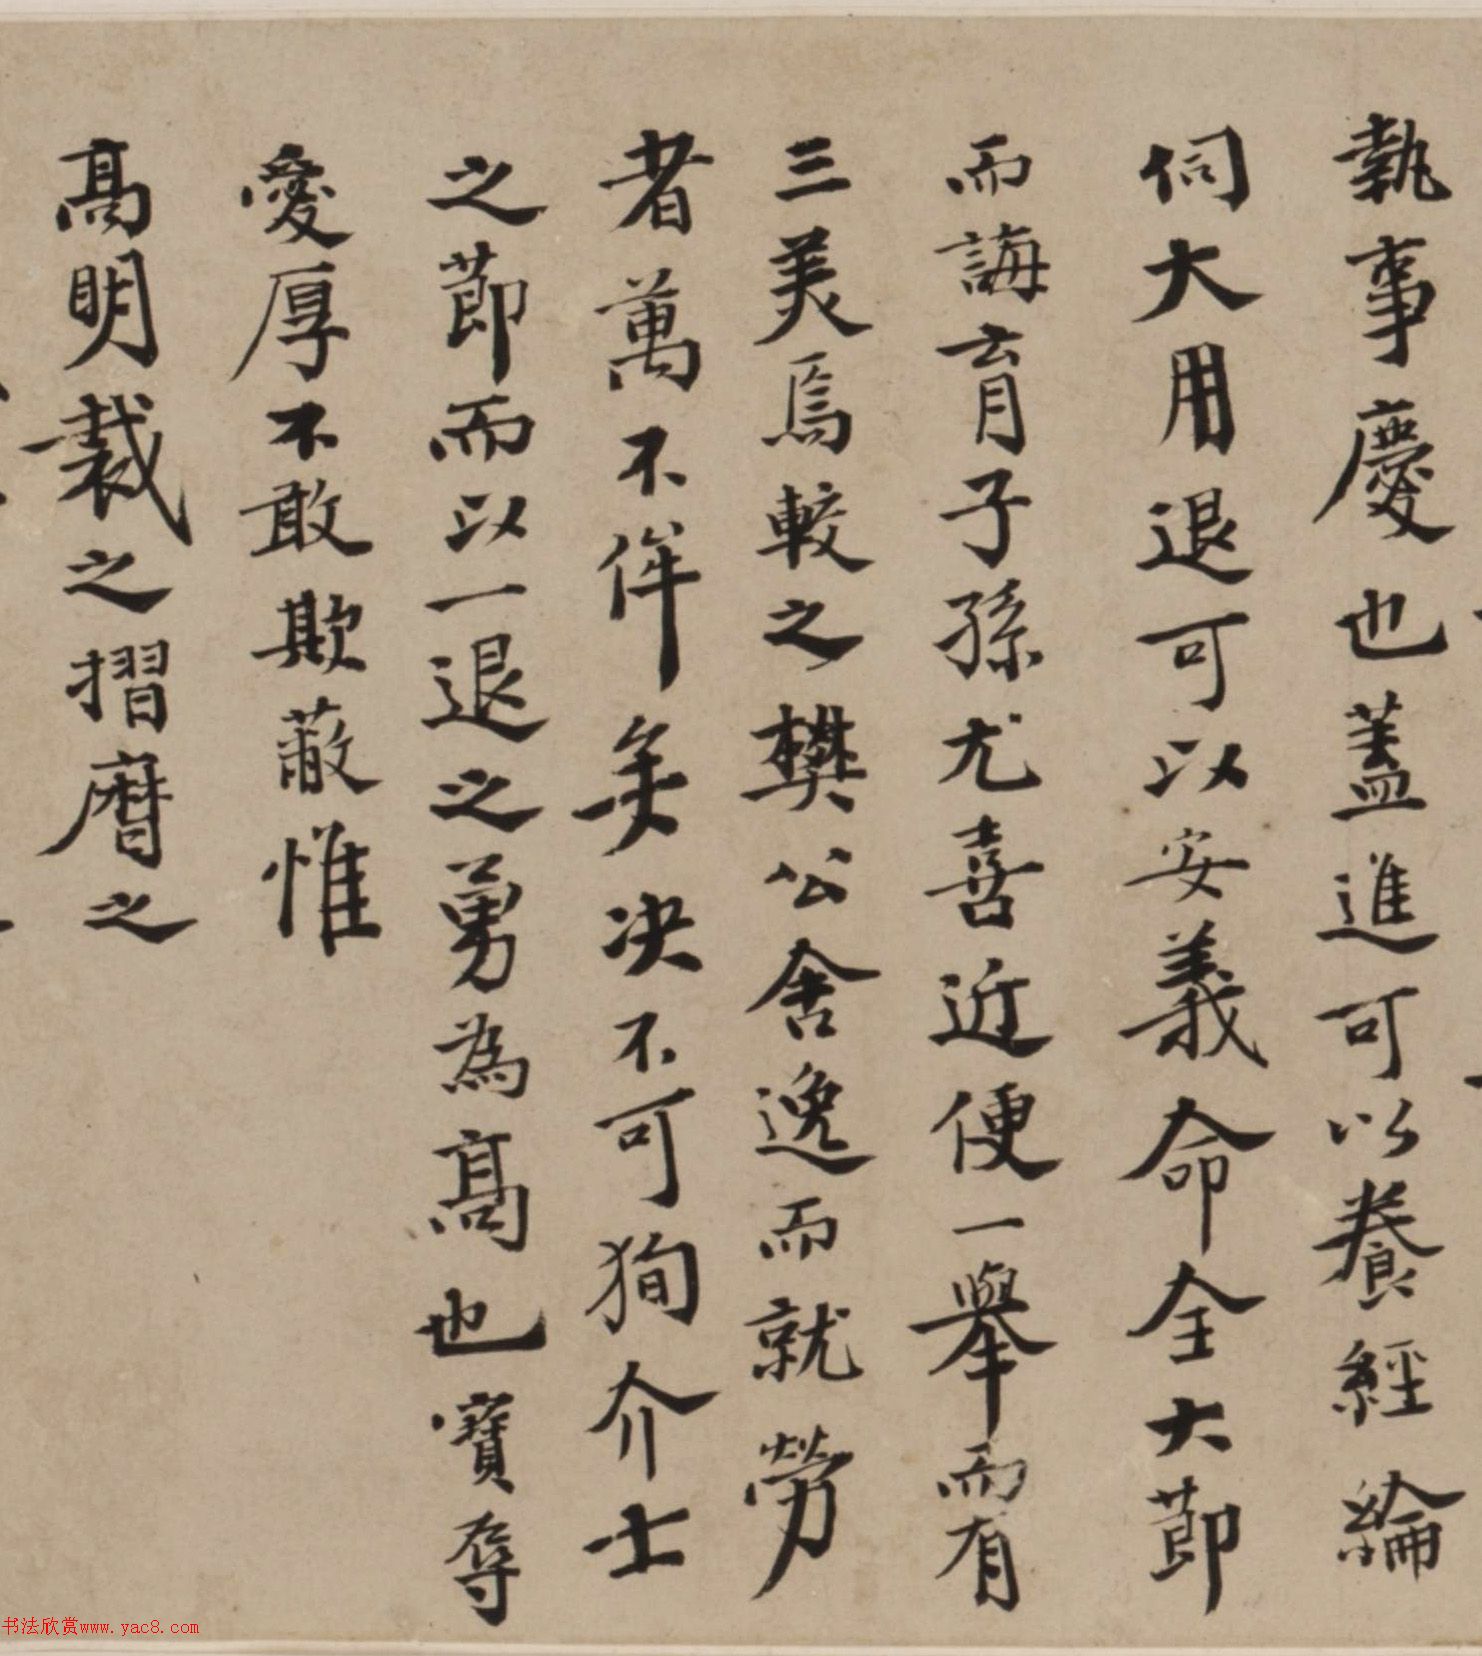 執事慶也蓋進可以養經綸
伺大用退可以安義命全大節
而誨育子孫尤喜近便一舉而有
三美焉較之樊公舍逸而就勞
者萬不侔矣決不可狥介士
之節而以一退之勇為高也寶辱
愛厚不敢欺蔽惟
高明裁之摺磨之
书法欣赏www.yac8.com